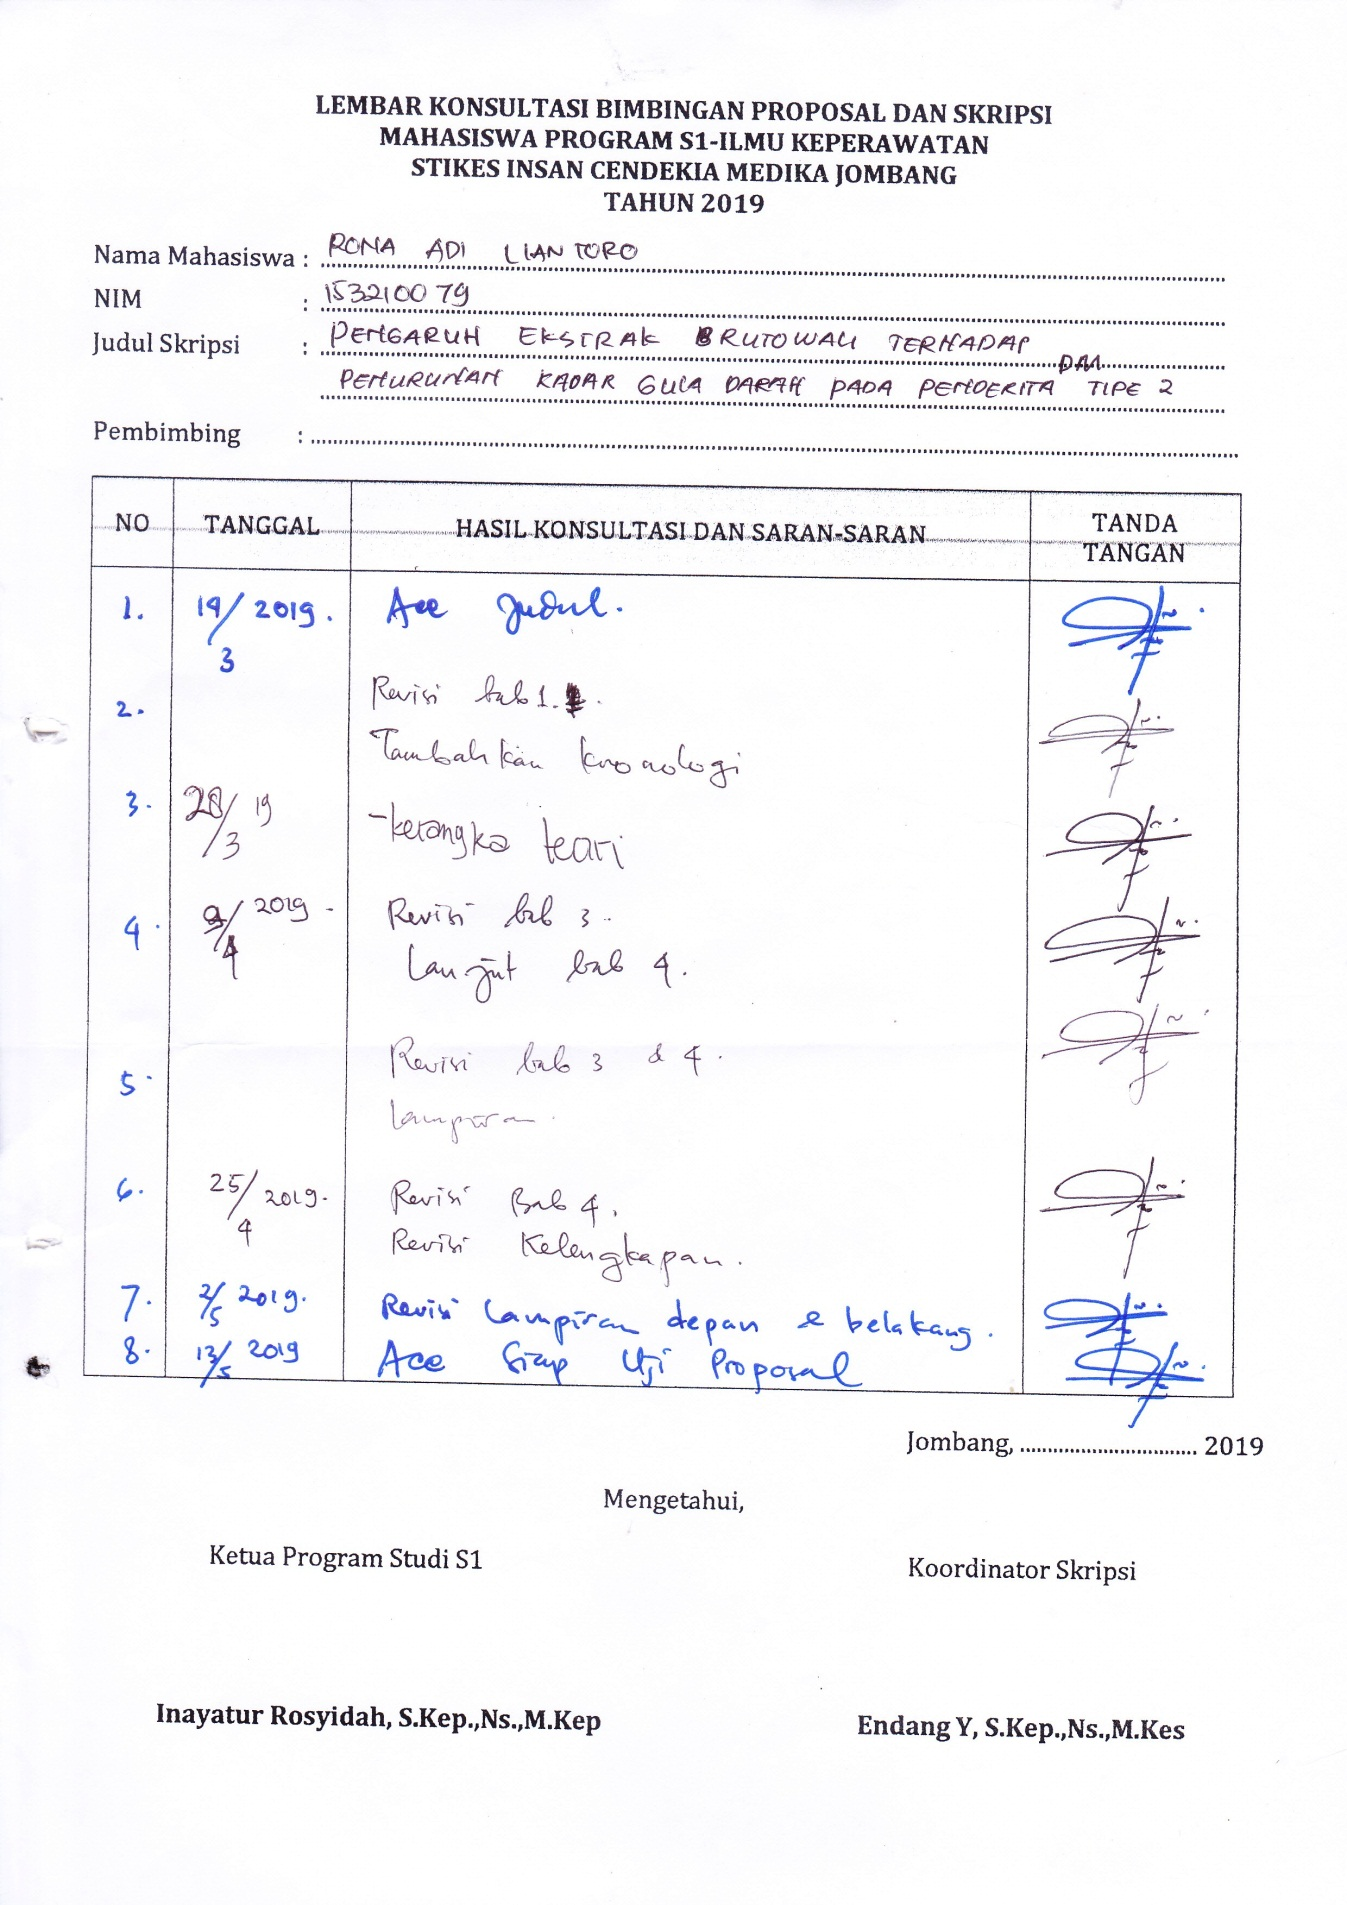 LEMBAR KONSULTASI BIMBINGAN PROPOSAL DAN SKRIPSI
MAHASISWA PROGRAM S1-ILMU KEPERAWATAN
STIKES INSAN CENDEKIA MEDIKA JOMBANG
TAHUN 2019
Nama Mahasiswa : RONA ADI LIANTORO
NIM : 153210079
Judul Skripsi : PENGARUH EKSTRAK BRUTOWALI TERHADAP
PENURUNAN KADAR GULA DARAH PADA PENDERITA DM TIPE 2
Pembimbing :
NO TANGGAL HASIL KONSULTASI DAN SARAN-SARAN TANDA TANGAN
1. 19/3 2019. Acc Judul.
2. Revisi bab 1.
Tambahkan kronologi
3. 28/3 19 -kerangka teori
4. 9/4 2019 - Revisi bab 3.
Lanjut bab 4.
5. Revisi bab 3 & 4.
Lampiran.
6. 25/4 2019. Revisi Bab 4.
Revisi Kelengkapan.
7. 2/5 2019. Revisi Lampiran depan & belakang.
8. 13/5 2019 Acc Siap Uji Proposal
Jombang, .............................. 2019
Mengetahui,
Ketua Program Studi S1 Koordinator Skripsi
Inayatur Rosyidah, S.Kep.,Ns.,M.Kep Endang Y, S.Kep.,Ns.,M.Kes